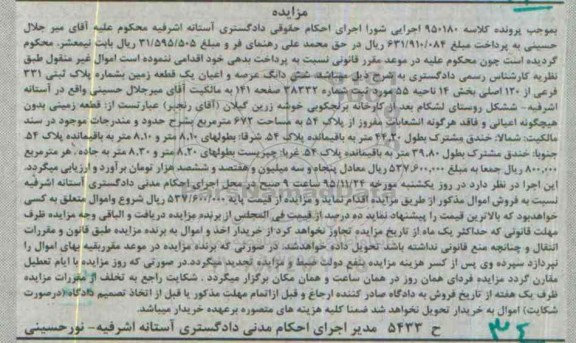 مزایده
بموجب پرونده کلاسه ۹۵۰۱۸۰ اجرایی شورا اجرای احکام حقوقی دادگستری آستانه اشرفیه محکوم علیه آقای میر جلال
حسینی به پرداخت مبلغ ۶۳۱/۹۱۰/۰۸۴ ریال در حق محمد علی رهنمای فر و مبلغ ۳۱/۵۹۵/۵۰۵ ریال بابت نیمعشر. محکوم
گردیده است چون محکوم علیه در موعد مقرر قانونی نسبت به پرداخت بدهی خود اقدامی ننموده است اموال غیر منقول طبق
نظریه کارشناس رسمی دادگستری به شرح ذیل میباشد: شش دانگ عرصه و اعیان یک قطعه زمین بشماره پلاک ثبتی ۳۳۱
فرعی از ۱۳۰ اصلی بخش ۱۴ ناحیه ۵۵ مورد ثبت شماره ۳۸۳۳۲ صفحه ۱۴۱ به مالکیت آقای میرجلال حسینی واقع در آستانه
اشرفیه- ششکل روستای لشکام بعد از کارخانه برنجکوبی خوشه زرین گیلان (آقای رنجبر) عبارتست از: قطعه زمینی بدون
هیچگونه اعیانی و فاقد هرگونه انشعابات مفروز از پلاک ۵۴ به مساحت ۶۷۲ مترمربع بشرح حدود و مندرجات موجود در سند
مالکیت: شمالا: خندق مشترک بطول ۴۴.۳۰ متر به باقیمانده پلاک ۵۴. شرقا: بطولهای ۸.۱۰ متر و ۸.۱۰ متر به باقیمانده پلاک ۵۴.
جنوبا: خندق مشترک بطول ۳۹.۸۰ متر به باقیمانده پلاک ۵۴. غربا: چپریست بطولهای ۸.۲۰ متر و ۸.۳۰ متر به جاده، هر مترمربع
۸۰۰,۰۰۰ ریال جمعا به مبلغ ۵۳۷,۶۰۰,۰۰۰ ریال معادل پنجاه و سه میلیون و هفتصد و ششصد هزار تومان برآورد و ارزیابی میگردد.
این اجرا در نظر دارد در روز یکشنبه مورخه ۹۵/۱۱/۲۴ ساعت ۹ صبح در محل اجرای احکام مدنی دادگستری آستانه اشرفیه
نسبت به فروش اموال مذکور از طریق مزایده اقدام نماید و مزایده از قیمت پایه ۵۳۷/۶۰۰/۰۰۰ ریال شروع واموال متعلق به کسی
خواهدبود که بالاترین قیمت را پیشنهاد نماید ده درصد از قیمت فی المجلس از برنده مزایده دریافت و الباقی وجه مزایده ظرف
مهلت قانونی که حداکثر یک ماه از تاریخ مزایده تجاوز نخواهد کرد از خریدار اخذ و اموال به برنده مزایده طبق قانون و مقررات
انتقال و چنانچه منع قانونی نداشته باشد تحویل داده خواهدشد. در صورتی که برنده مزایده در موعد مقرربقیه بهای اموال را
نپردازد سپرده وی پس از کسر هزینه مزایده بنفع دولت ضبط و مزایده تجدید میگردد.در صورتی که روز مزایده با ایام تعطیل
مقارن گردد مزایده فردای همان روز در همان ساعت و همان مکان برگزار میگردد . شکایت راجع به تخلف از مقررات مزایده
ظرف یک هفته از تاریخ فروش به دادگاه صادر کننده ارجاع و قبل ازاتمام مهلت مذکور یا قبل از اتخاذ تصمیم دادگاه (درصورت
شکایت) اموال به خریدار تحویل نخواهد شد ضمنا کلیه هزینه های متصوره برعهده خریدار میباشد.
ح ۵۴۳۳ مدیر اجرای احکام مدنی دادگستری آستانه اشرفیه- نورحسینی